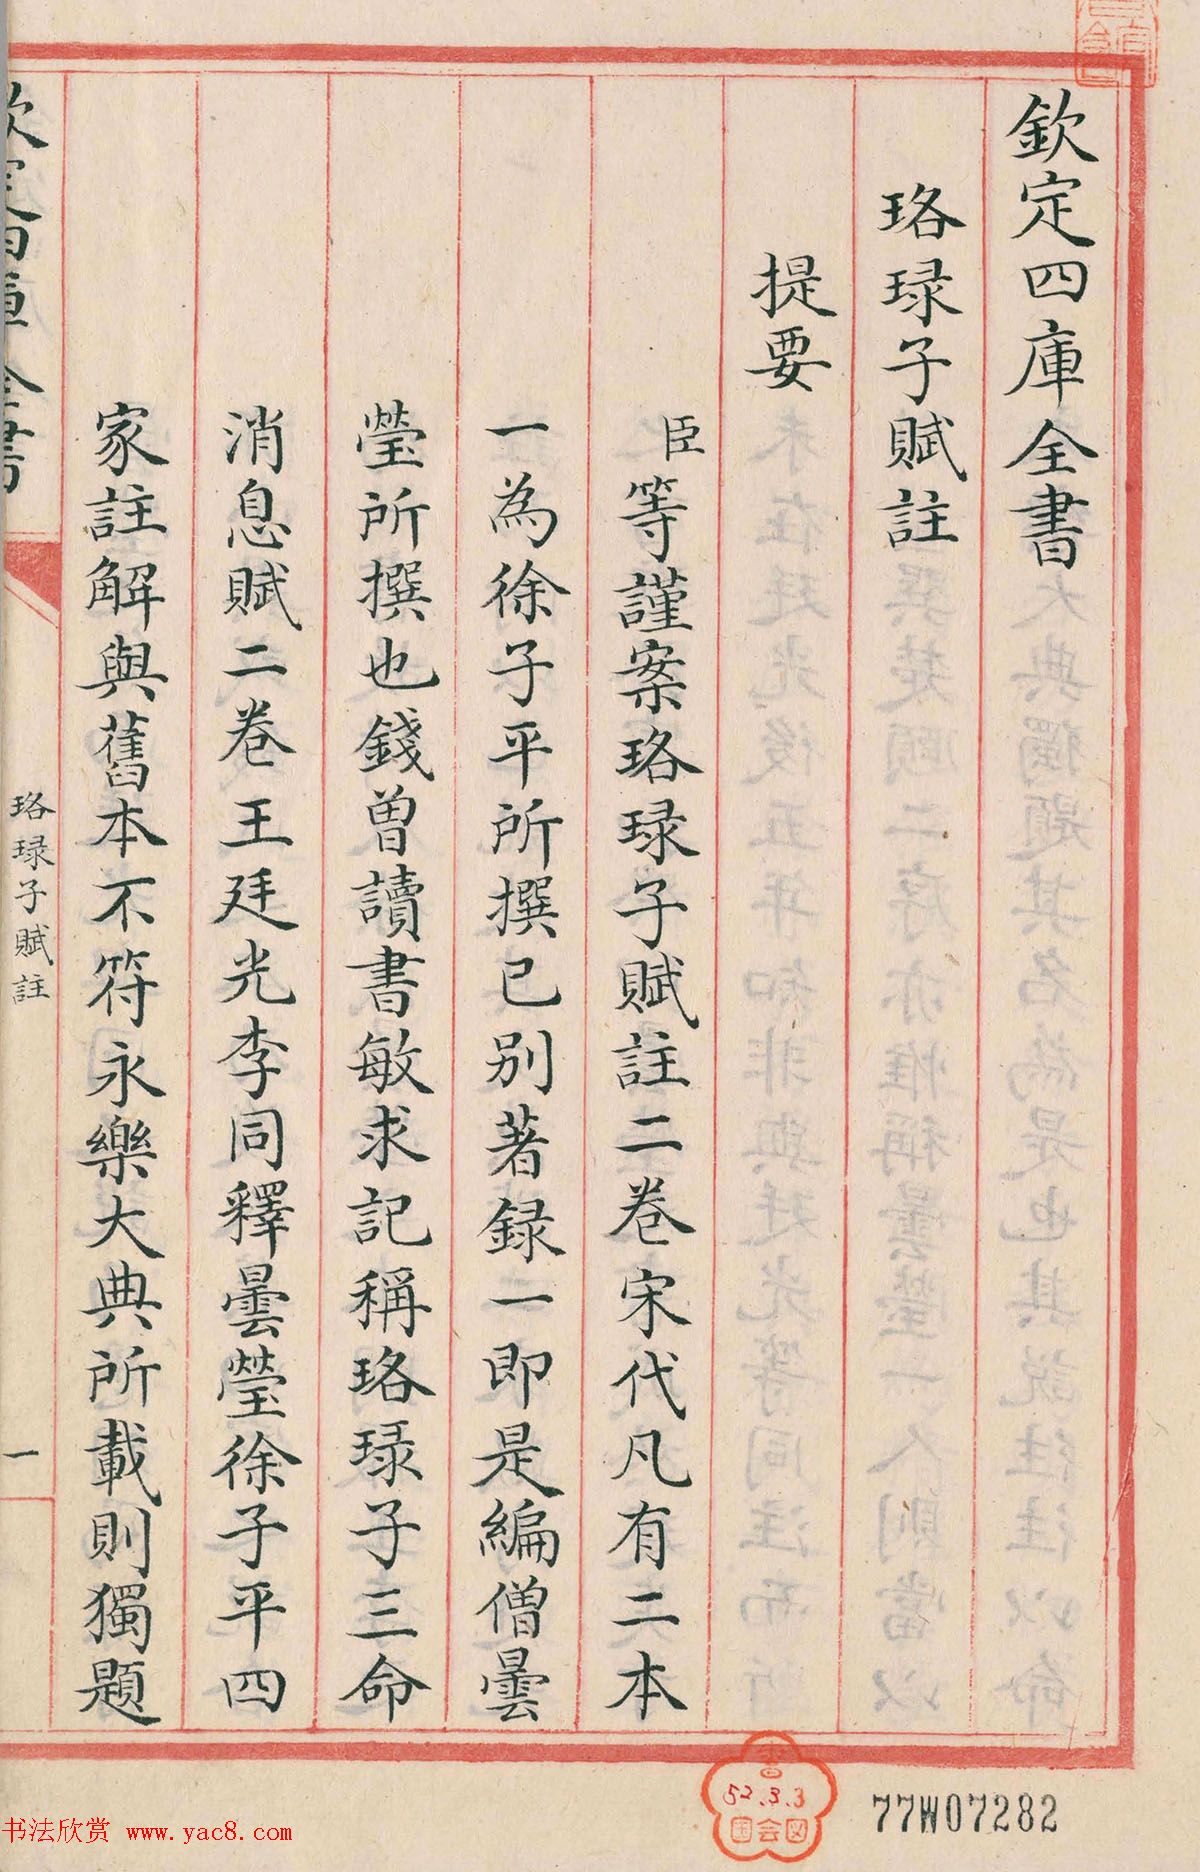 欽定四庫全書
珞琭子賦註
提要
臣等謹案珞琭子賦註二卷宋代凡有二本
一為徐子平所撰已别著録一即是編僧曇
瑩所撰也錢曾讀書敏求記稱珞琭子三命
消息賦二卷王廷光李同釋曇瑩徐子平四
家註解與舊本不符永樂大典所載則獨題
欽定四庫全書
珞琭子賦註
一
52.3.3
77W07282
书法欣赏 www.yac8.com